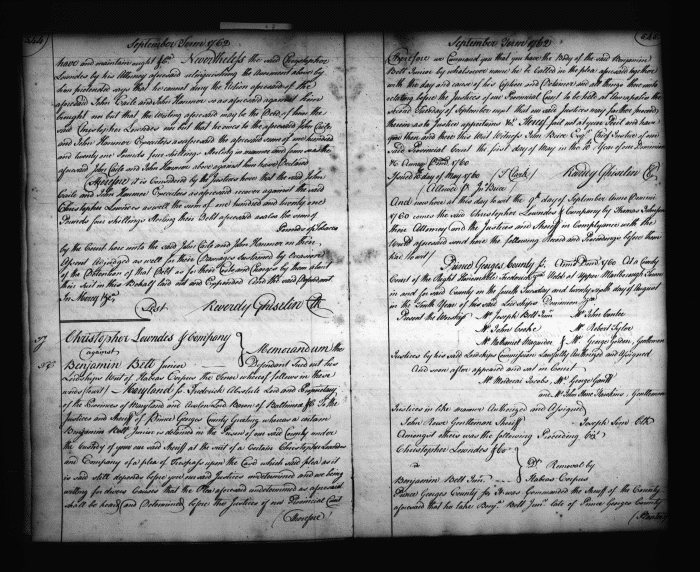 544
September Term 1762
have and maintain ought &c. Nevertheless the said Christopher
Lowndes by his Attorney aforesaid relinquishing the Averment above by
him pretended says that he cannot deny the Action aforesaid of the
aforesaid John Coile and John Hanmer so as aforesaid against them
brought nor but that the Writing aforesaid may be the Deed of him the
said Christopher Lowndes nor but that he owes to the aforesaid John Coile
and John Hanmer Executors as aforesaid the aforesaid sum of one hundred
and twenty one Pounds four shillings Sterling in manner and form as the
aforesaid John Coile and John Hanmer above against him have Declared
Therefore it is Considered by the Justices here that the said John
Coile and John Hanmer Executors as aforesaid recover against the said
Christopher Lowndes as well the sum of one hundred and twenty one
Pounds four shillings Sterling their Debt aforesaid as also the sum of
Pounds of Tobacco
by the Court here unto the said John Coile and John Hanmer on their
Assent Adjudged as well for their Damages sustained by Occasion
of the Detention of that Debt as for their Costs and Charges by them about
their Suit in this Behalf laid out and Expended And the said Defendant
In Mercy &c.
Test Reverdy Ghiselin Clk
Christopher Lowndes & Company
against
Benjamin Bell Junior
Memorandum the
Defendant sued out his
Lordships Writ of Habeas Corpus the Tenor whereof follows in these
words (to wit) Maryland ss Frederick Absolute Lord and Proprietary
of the Provinces of Maryland and Avalon Lord Baron of Baltimore &c To the
Justices and Sheriff of Prince Georges County Greeting whereas a certain
Benjamin Bell Junior is detained in the Prison of our said County under
the Custody of you our said Sheriff at the suit of a Certain Christopher Lowndes
and Company of a plea of Trespass upon the Case which said plea as it
is said still depends before you our said Justices undetermined and we being
willing for divers Causes that the Plea aforesaid undetermined as aforesaid
shall be heard and Determined before the Justices of our Provincial Court
(Therefore
September Term 1762
Therefore we Command you that you have the Body of the said Benjamin
Bell Junior by whatsoever name he be Called in the plea aforesaid together
with the day and cause of his Caption and Detainer and all things thereunto
relating before the Justices of our Provincial Court to be held at Annapolis the
second Tuesday of September next that our said Justices may further proceed
therein as to Justice appertains &c. Hereof fail not at your Peril and have
you then and there this Writ Witness John Brice Esqr. Chief Justice of our
said Provincial Court the first day of May in the 10 Year of our Dominion
&c Anno Domini 1760
Issued 10 day of May 1760 (T Clark) Reverdy Ghiselin Clk
(Allowed p John Brice)
And now here at this day to wit the 9th day of September Anno Domini
1760 comes the said Christopher Lowndes & Company by Thomas Johnson
their Attorney and the Justices and Sheriff in Compliance with the
Writ aforesaid send here the following Record and Proceedings before them
had to wit)
Prince Georges County ss. Anno Domini 1760 At a County
Court of the Right Honourable Frederick Held at Upper Marlborough Town
in and for said County on the fourth Tuesday and twenty sixth day of August
in the Tenth Year of his said Lordships Dominion &c
Present the Worshipl Mr Joseph Belt Junr. Mr John Contee
Mr John Cooke Mr Robert Tyler
Mr Nathaniel Magruder & Mr George Gordon Gentlemen
Justices by his said Lordships Commission Lawfully Authorized and Assigned
And soon after appeared and sat in Court
Mr Mordecai Jacobs Mr George Gantt
and Mr John Hawkins, Gentlemen
Justices in like manner Authorized and Assigned
John Rowe Gentleman Sheriff Joseph Sim Clk
Amongst others was the following Proceeding &c
Christopher Lowndes & Co
a
Benjamin Bell Junr.
Dt. Removal by
Habeas Corpus
Prince Georges County ss It was Commanded the Sheriff of the County
aforesaid that he take Benja. Bell Junr. late of Prince Georges County